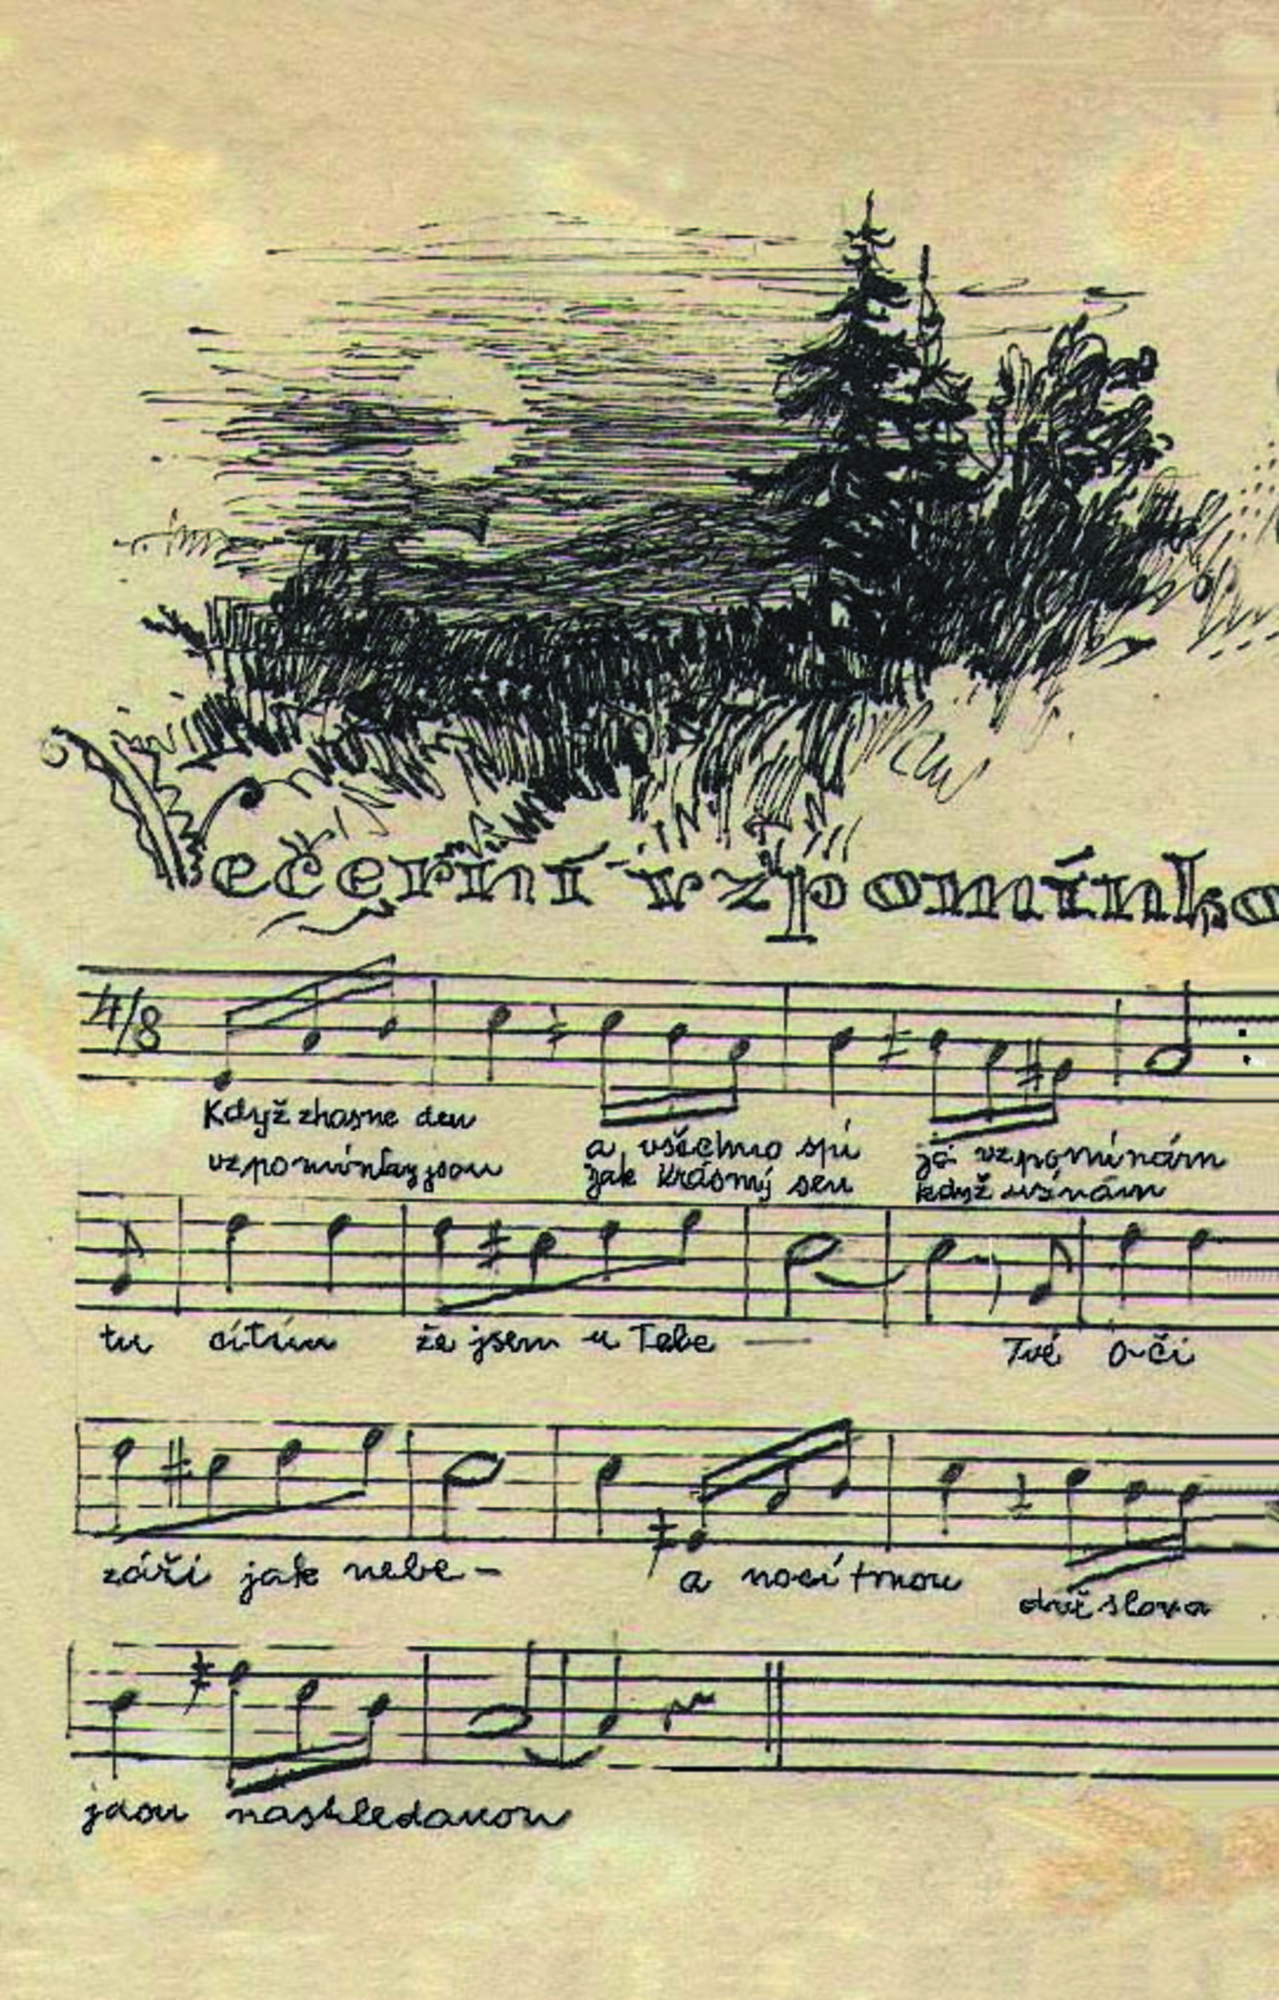 Večerní vzpomínka
4/8
Když zhasne den
a všechno spí
já vzpomínám
vzpomínky jsou
jak krásný sen
když usínám
tu cítím že jsem u Tebe — Tvé oči
září jak nebe - a nocí tmou
dvě slova
jdou nashledanou